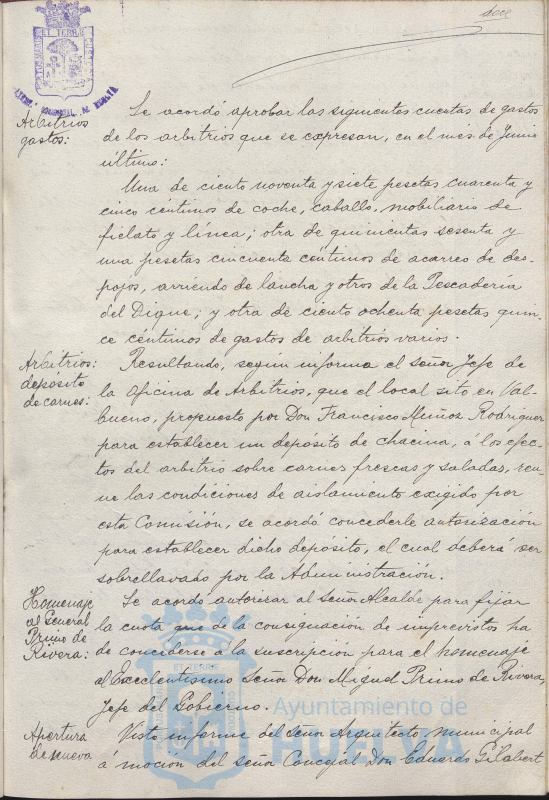 doce
PORTUS MARIS ET TERRE CUSTODIA
Arbitrios
gastos:
Se acordó aprobar las siguientes cuentas de gastos
de los arbitrios que se expresan, en el mes de Junio
último:
Una de ciento noventa y siete pesetas cuarenta y
cinco céntimos de coche, caballo, mobiliario de
fielato y línea; otra de quinientas sesenta y
una pesetas cincuenta céntimos de acarreo de des-
pojos, arriendo de lancha y otros de la Pescadería
del Dique; y otra de ciento ochenta pesetas quin-
ce céntimos de gastos de arbitrios varios.
Arbitrios:
depósito
de carnes:
Resultando, según informa el señor Jefe de
la Oficina de Arbitrios, que el local sito en Val-
bueno, propuesto por Don Francisco Muñoz Rodriguez
para establecer un depósito de chacina, á los efec-
tos del arbitrio sobre carnes frescas y saladas, reu-
ne las condiciones de aislamiento exigido por
esta Comisión, se acordó concederle autorización
para establecer dicho depósito, el cual deberá ser
sobrellavado por la Administración.
Homenaje
al General
Primo de
Rivera:
Se acordó autorizar al Señor Alcalde para fijar
la cuota que de la consignación de imprevistos ha
de concederse a la suscripción para el homenaje
al Excelentísimo Señor Don Miguel Primo de Rivera,
Jefe del Gobierno.
Apertura
de nueva
Visto informe del señor Arquitecto municipal
á moción del señor Concejal Don Eduardo Gilabert
Ayuntamiento de
HUELVA